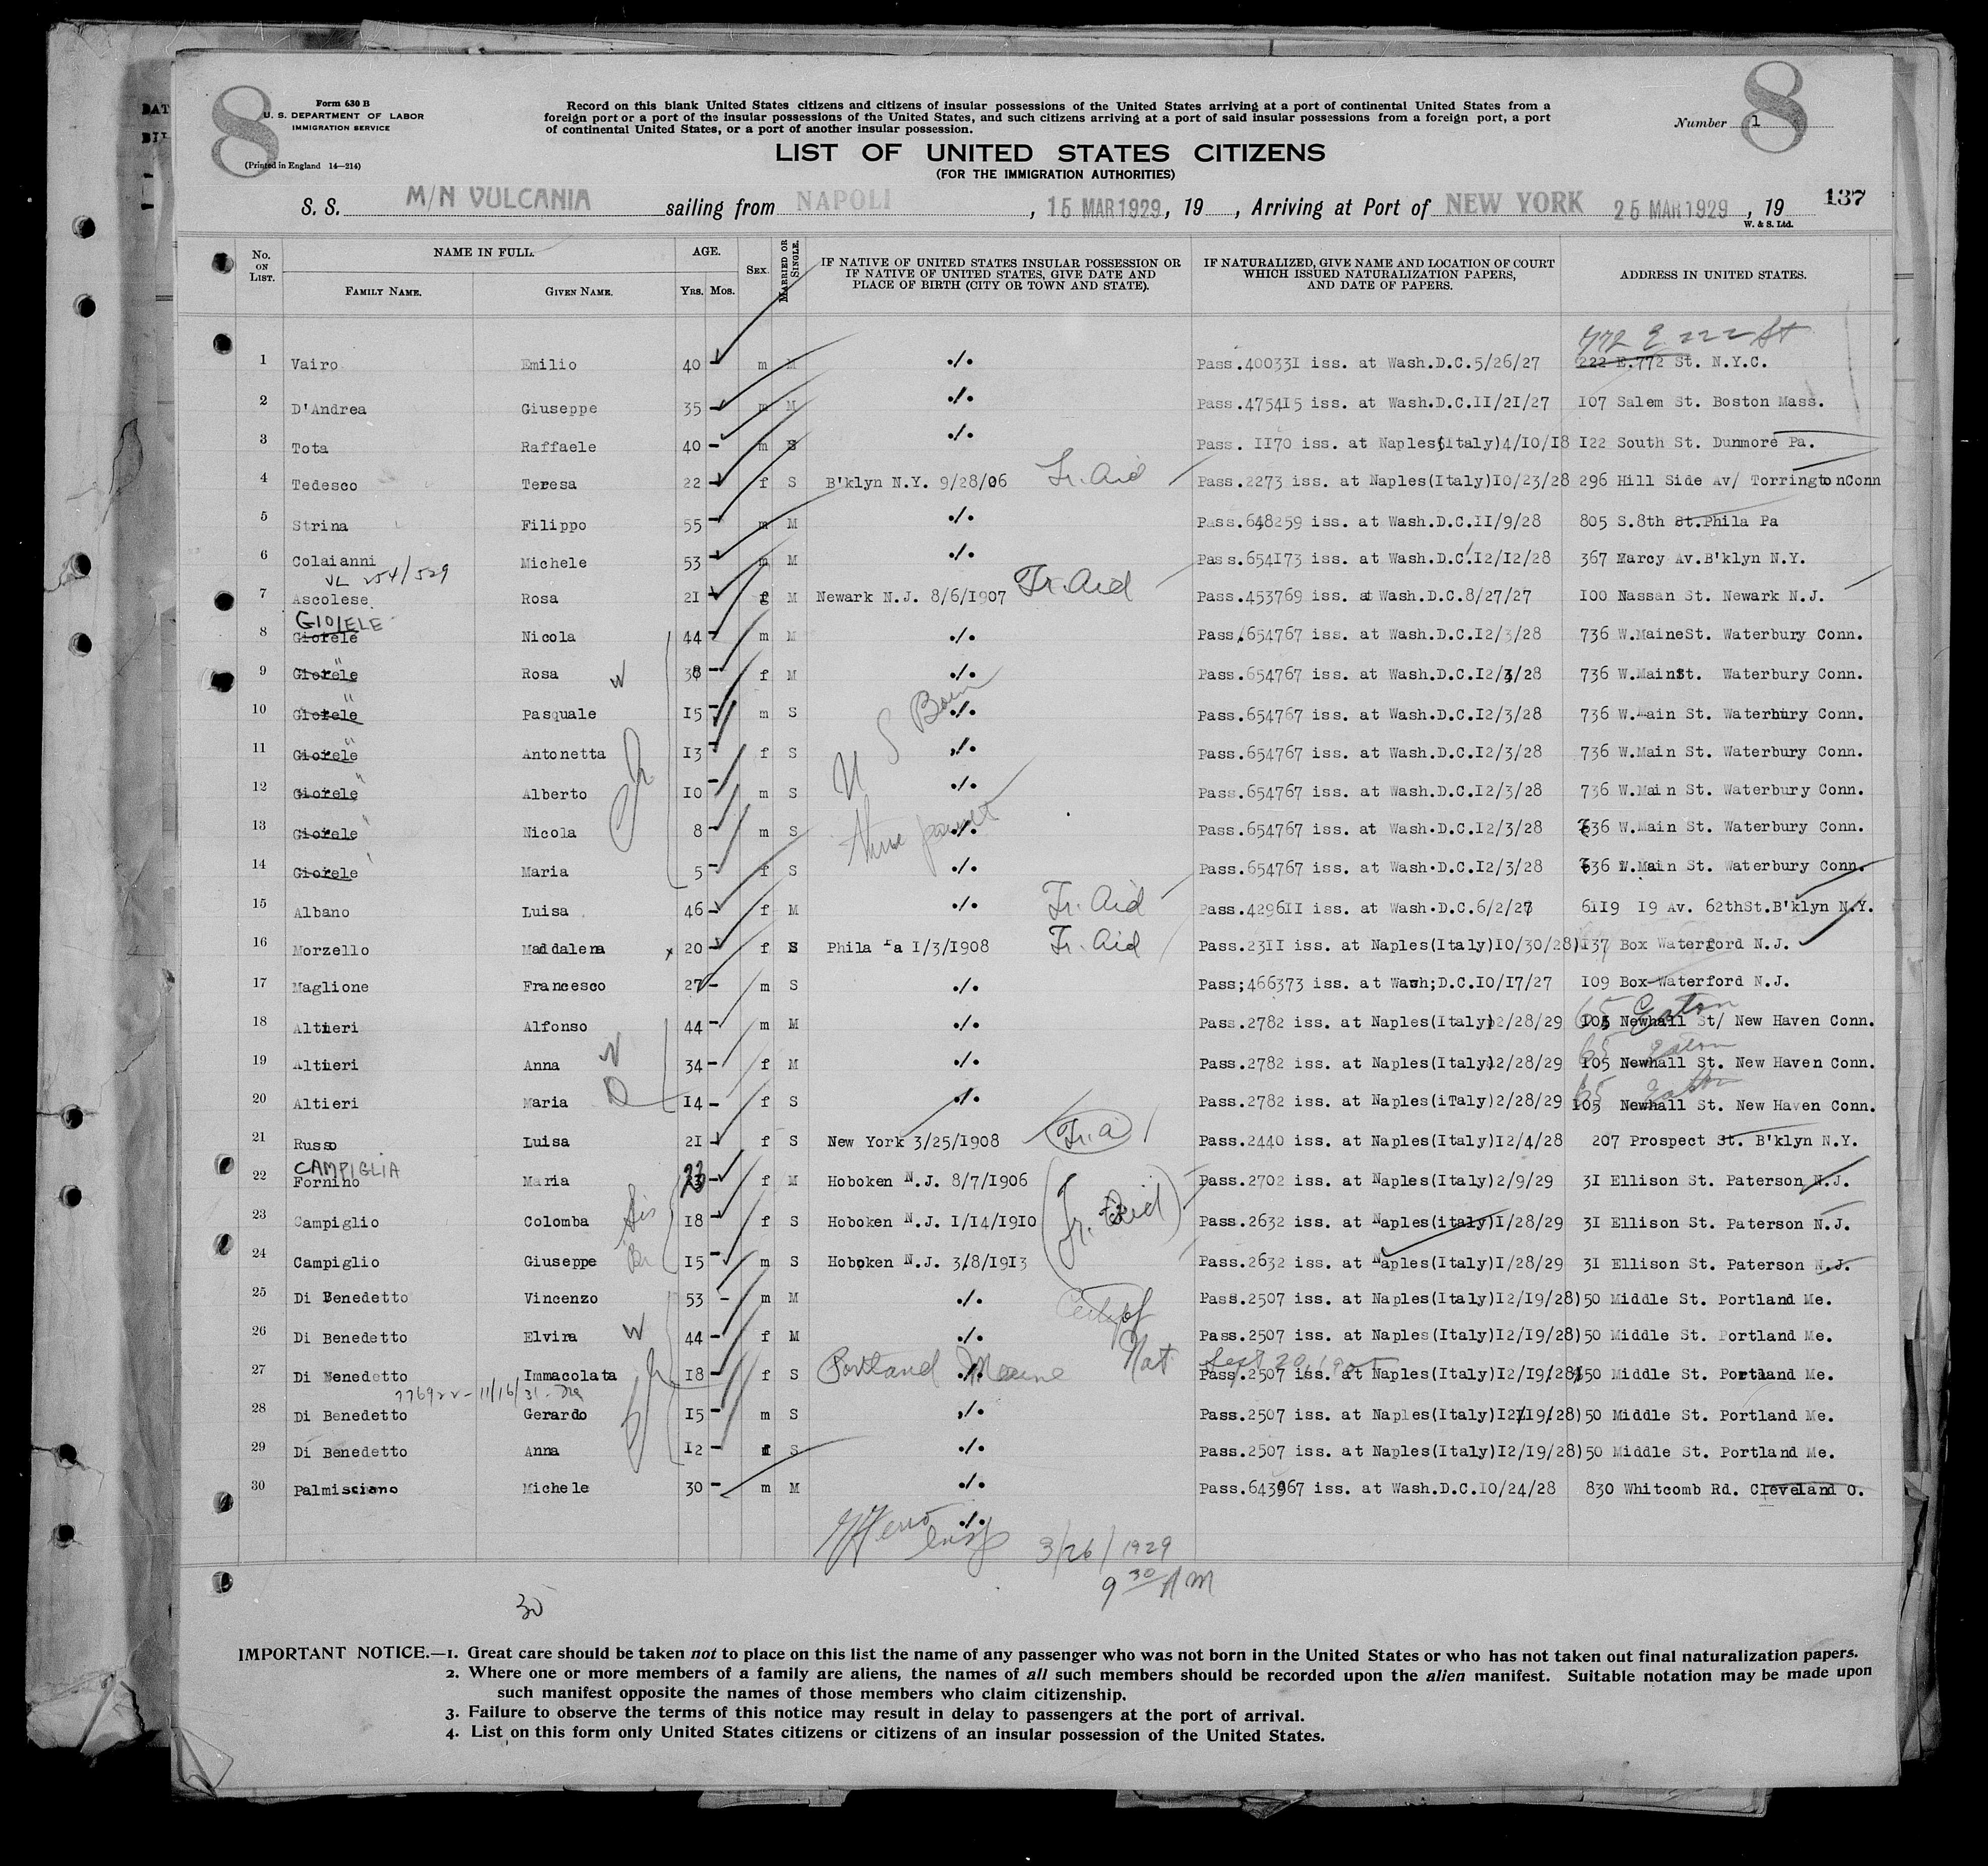 8
Form 630 B
U. S. DEPARTMENT OF LABOR
IMMIGRATION SERVICE
(Printed in England 14—214)
Record on this blank United States citizens and citizens of insular possessions of the United States arriving at a port of continental United States from a
foreign port or a port of the insular possessions of the United States, and such citizens arriving at a port of said insular possessions from a foreign port, a port
of continental United States, or a port of another insular possession.
8
Number 1
LIST OF UNITED STATES CITIZENS
(FOR THE IMMIGRATION AUTHORITIES)
S. S. M/N VULCANIA sailing from NAPOLI, 15 MAR 1929, 19 , Arriving at Port of NEW YORK 25 MAR 1929, 19
137
W. & S. Ltd.
No. ON LIST. NAME IN FULL. FAMILY NAME. GIVEN NAME. AGE. YRS. MOS. SEX. MARRIED OR SINGLE. IF NATIVE OF UNITED STATES INSULAR POSSESSION OR IF NATIVE OF UNITED STATES, GIVE DATE AND PLACE OF BIRTH (CITY OR TOWN AND STATE). IF NATURALIZED, GIVE NAME AND LOCATION OF COURT WHICH ISSUED NATURALIZATION PAPERS, AND DATE OF PAPERS. ADDRESS IN UNITED STATES.
772 E 222 St
1 Vairo Emilio 40 - m M ./. Pass.400331 iss. at Wash.D.C.5/26/27 222 E.772 St. N.Y.C.
2 D'Andrea Giuseppe 35 - m M ./. Pass.475415 iss. at Wash.D.C.11/21/27 107 Salem St. Boston Mass.
3 Tota Raffaele 40 - m S ./. Pass. 1170 iss. at Naples(Italy)4/10/18 122 South St. Dunmore Pa.
4 Tedesco Teresa 22 - f S B'klyn N.Y. 9/28/06 Tr. Aid Pass.2273 iss. at Naples(Italy)10/23/28 296 Hill Side Av/ TorringtonConn
5 Strina Filippo 55 - m M ./. Pass.648259 iss. at Wash.D.C.11/9/28 805 S.8th St.Phila Pa
6 Colaianni Michele 53 - m M ./. Pass.654173 iss. at Wash.D.C.12/12/28 367 Marcy Av.B'klyn N.Y.
VL 254/529
7 Ascolese Rosa 21 - f M Newark N.J. 8/6/1907 Tr. Aid Pass.453769 iss. at Wash.D.C.8/27/27 100 Nassan St. Newark N.J.
GIOIELE
8 Gioiele Nicola 44 - m M ./. Pass/654767 iss. at Wash.D.C.12/3/28 736 W.MaineSt. Waterbury Conn.
9 Gioiele " Rosa W 38 - f M ./. Pass.654767 iss. at Wash.D.C.12/3/28 736 W.MainSt. Waterbury Conn.
10 Gioiele " Pasquale 15 - m S ./. Pass.654767 iss. at Wash.D.C.12/3/28 736 W.Main St. Waterbury Conn.
U S Born
11 Gioiele " Antonetta 13 - f S ./. Pass.654767 iss. at Wash.D.C.12/3/28 736 W.Main St. Waterbury Conn.
Ch
12 Gioiele " Alberto 10 - m S ./. Pass.654767 iss. at Wash.D.C.12/3/28 736 W.Main St. Waterbury Conn.
13 Gioiele " Nicola 8 - m S ./. Pass.654767 iss. at Wash.D.C.12/3/28 736 W.Main St. Waterbury Conn.
14 Gioiele " Maria 5 - f S ./. Pass.654767 iss. at Wash.D.C.12/3/28 736 W.Main St. Waterbury Conn.
15 Albano Luisa 46 - f M ./. Tr. Aid Pass.429611 iss. at Wash.D.C.6/2/27 6119 19 Av. 62thSt.B'klyn N.Y.
16 Morzello Maddalena x 20 - f S Phila Pa 1/3/1908 Tr. Aid Pass.2311 iss. at Naples(Italy)10/30/28)137 Box Waterford N.J.
17 Maglione Francesco 27 - m S ./. Pass;466373 iss. at Wash;D.C.10/17/27 109 Box Waterford N.J.
65 Eaton
18 Altieri Alfonso 44 - m M ./. Pass.2782 iss. at Naples(Italy)2/28/29 105 Newhall St/ New Haven Conn.
65 Eaton
19 Altieri Anna W 34 - f M ./. Pass.2782 iss. at Naples(Italy)2/28/29 105 Newhall St. New Haven Conn.
65 Eaton
20 Altieri Maria D 14 - f S ./. Pass.2782 iss. at Naples(iTaly)2/28/29 105 Newhall St. New Haven Conn.
21 Russo Luisa 21 - f S New York 3/25/1908 Tr. a Pass.2440 iss. at Naples(Italy)12/4/28 207 Prospect St. B'klyn N.Y.
CAMPIGLIA
22 Fornino Maria - f M Hoboken N.J. 8/7/1906 Pass.2702 iss. at Naples(Italy)2/9/29 31 Ellison St. Paterson N.J.
23 Campiglio Colomba Sis 18 - f S Hoboken N.J. 1/14/1910 Tr. Aid Pass.2632 iss. at Naples(italy)1/28/29 31 Ellison St. Paterson N.J.
24 Campiglio Giuseppe Br 15 - m S Hoboken N.J. 3/8/1913 Pass.2632 iss. at Naples(Italy)1/28/29 31 Ellison St. Paterson N.J.
25 Di Benedetto Vincenzo 53 - m M ./. Pass.2507 iss. at Naples(Italy)12/19/28)50 Middle St. Portland Me.
Cert of
26 Di Benedetto Elvira W 44 - f M ./. Pass.2507 iss. at Naples(Italy)12/19/28)50 Middle St. Portland Me.
Nat Sept 20, 1905
27 Di Benedetto Immacolata 18 - f S Portland Maine ./. Pass.2507 iss. at Naples(Italy)12/19/28)50 Middle St. Portland Me.
776922 - 11/16/31
28 Di Benedetto Gerardo Ch 15 - m S ./. Pass.2507 iss. at Naples(Italy)12/19/28)50 Middle St. Portland Me.
29 Di Benedetto Anna 12 - f S ./. Pass.2507 iss. at Naples(Italy)12/19/28)50 Middle St. Portland Me.
30 Palmisciano Michele 30 - m M ./. Pass.643967 iss. at Wash.D.C.10/24/28 830 Whitcomb Rd. Cleveland O.
./.
insp 3/26/1929
9 30 AM
30
IMPORTANT NOTICE.—1. Great care should be taken not to place on this list the name of any passenger who was not born in the United States or who has not taken out final naturalization papers.
2. Where one or more members of a family are aliens, the names of all such members should be recorded upon the alien manifest. Suitable notation may be made upon
such manifest opposite the names of those members who claim citizenship.
3. Failure to observe the terms of this notice may result in delay to passengers at the port of arrival.
4. List on this form only United States citizens or citizens of an insular possession of the United States.